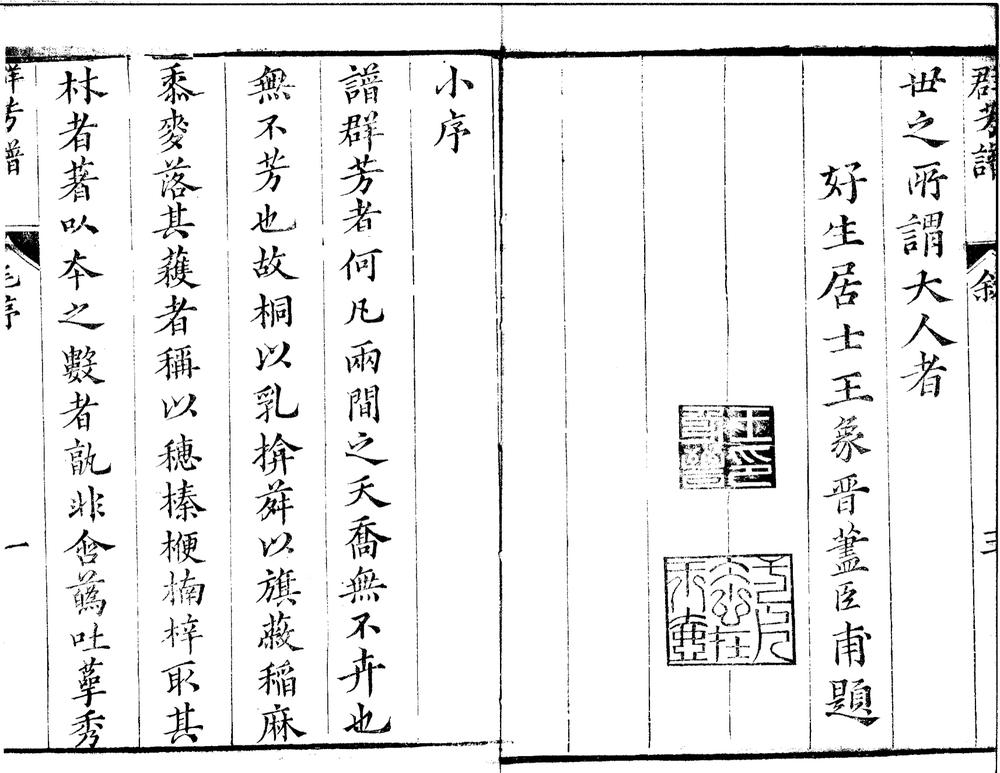 群芳譜 敘 三
世之所謂大人者
好生居士王象晉藎臣甫題
小序
譜群芳者何凡兩間之夭喬無不卉也
無不芳也故桐以乳揜蕣以旗蔽稲麻
黍麥落其穫者稱以穗榛楩楠梓取其
材者著以本之數者孰非含蘤吐蕚秀
群芳譜 序 一